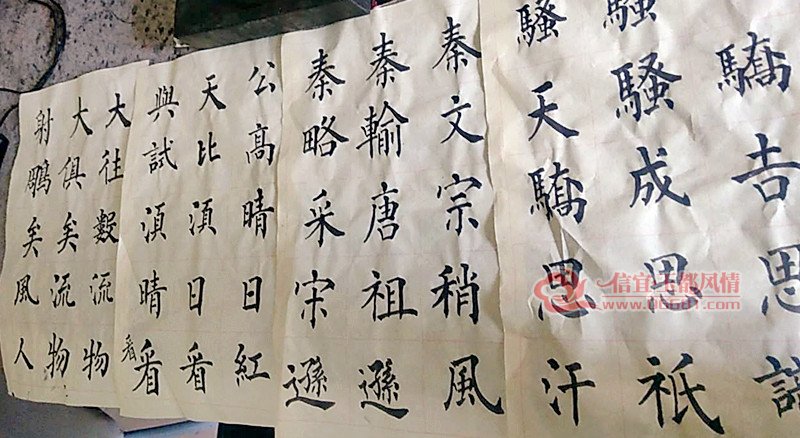 驕吉思
騷騷成思祇
騷天驕思汗
秦文宗稍風
秦輸唐祖遜
秦略采宋遜
公高晴日紅
天比湏日看
與試湏晴看
看
大往數流物
大俱矣流物
射鵰矣風人
信宜玉都风情